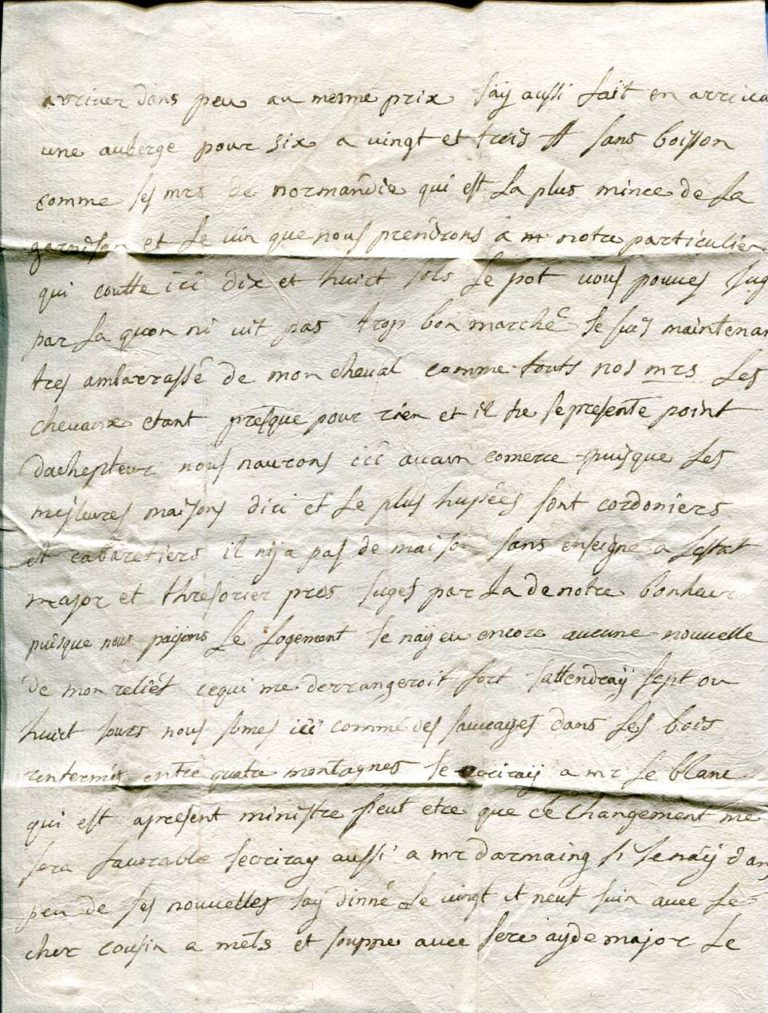 arriver dans peu au mesme prix Jay aussi fait en arriva
une auberge pour six a vingt et trois tt sans boisson
comme les mrs de normandie qui est La plus mince de La
garnison et Le vin que nous prendrons a notre particulier
qui coutte ici dix et huict sols Le pot vous pouves Jug
par La quon ni vit pas trop bon marché Je suis maintenan
tres ambarrassé de mon cheval comme touts nos mrs Les
chevaux etant presque pour rien et il ne se presente point
dachepteur nous naurons ici aucun comerce puisque Les
meilleures maisons dici et Le plus hupées sont cordoniers
et cabaretiers il nÿ a pas de maison sans enseigne a Lestat
major et thresorier pres Juges par La de notre bonheur
puisque nous paÿons Le Logement Je naÿ eu encore aucune nouvelle
de mon relief cequi me derrangeroit fort Jattendraÿ sept ou
huict Jours nous somes ici comme des sauvages dans Les bois
renfermés entre quatre montagnes Je ecriraÿ a mr Le blanc
qui est apresent ministre peut etre que ce changement me
sera favorable Jecriray aussi a mr darmaing si Je naÿ dan
peu de ses nouvelles Jaÿ dinné Le vingt et neuf Juin avec Le
cher cousin a mets et souppe avec ayde major Le